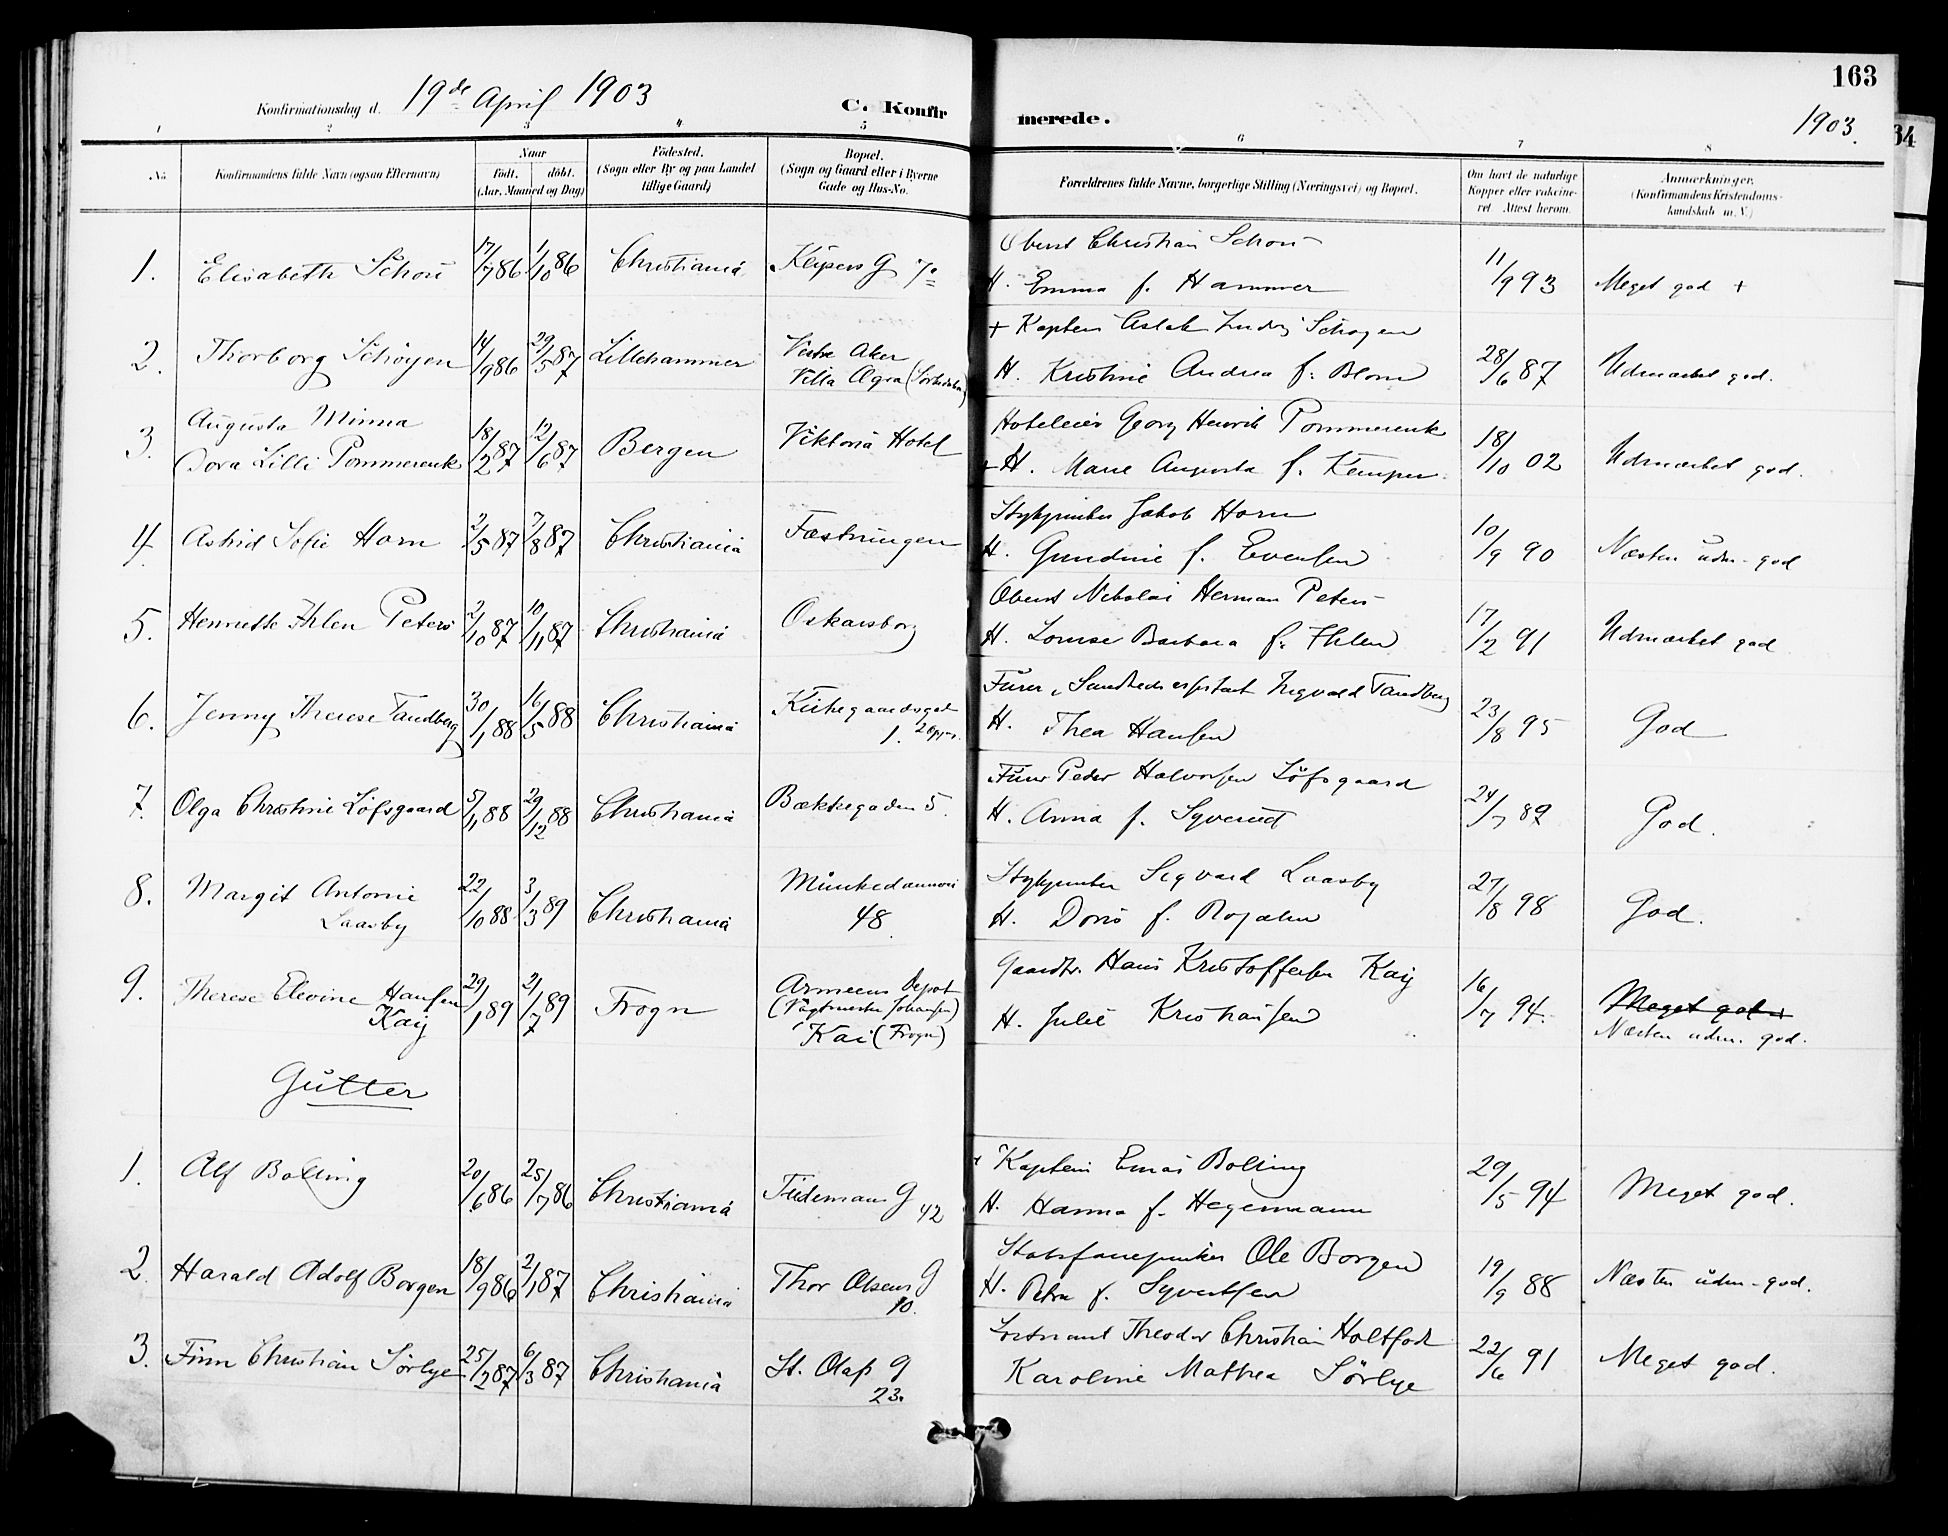 163
Konfirmationsdag d. 19de April 1903 C. Konfirmerede. 1903.
1 2 3 4 5 6 7 8
No.
Konfirmandens fulde Navn (ogsaa Efternavn)
Naar
födt. döbt.
(Aar, Maaned og Dag)
Födested.
(Sogn eller By og paa Landet
tillige Gaard)
Bopæl.
(Sogn og Gaard eller i Byerne
Gade og Hus-No.
Forældrenes fulde Navne, borgerlige Stilling (Næringsvei) og Bopæl.
Om havt de naturlige
Kopper eller vakcine-
ret. Attest herom.
Anmærkninger.
(Konfirmandens Kristendoms-
kundskab m. V.)
1. Elisabeth Schou 17/7 86 1/10 86 Christiania Keysers G 7
Oberst Christian Schou
H. Emma f. Hammer 11/9 93 Meget god +
2. Thorborg Schøyen 14/9 86 29/5 87 Lillehammer Vestre Aker
Villa Ægra
+ Kaptein Aslak Ludvig Schøyen
H. Kristine Andrea f. Blom 28/6 87 Udmærket god.
3. Augusta Minna
Dora Lilli Pommerenk 18/2 87 12/6 87 Bergen Viktoria Hotel
Hoteleier Georg Henrik Pommerenk
H. Marie Augusta f. Kemper 18/10 02 Udmærket god.
4. Astrid Sofie Horn 2/5 87 7/8 87 Christiania Fæstningen
Stykjunker Jakob Horn
H. Gundine f. Evensen 10/9 90 Næsten udm-god
5. Henriette Ihlen Peters 2/10 87 10/11 87 Christiania Oskarsborg
Oberst Nikolai Herman Peters
H. Lovise Barbara f. Ihlen 17/2 91 Udmærket god
6. Jenny Therese Tandberg 30/1 88 16/5 88 Christiania Kirkegaardsgt
1.
Furer, Sundheds Ingvald Tandberg
H. Thea Hansen 23/8 95 God
7. Olga Christine Løfsgaard 5/11 88 29/12 88 Christiania Bækkegaden 5.
Furer Peder Halvorsen Løfsgaard
H. Anna f. Syverud 24/7 89 God.
8. Margit Antonie
Laasby 22/10 88 3/3 89 Christiania Munkedamsvei
48
Stykjunker Sigvard Laasby
H. Doris f. 27/8 98 God.
9. Therese Elevine Hansen
Kaij 29/1 89 21/7 89 Frogn Armeens Depot
(Vagtmester Johansen)
Kai (Frogn)
Gaardbr. Hans Kristoffersen Kaij
H. Julie Kristiansen 16/7 94 Meget god +
Næsten udm. god.
Gutter
1. Alf Bolling 20/6 86 25/7 86 Christiania Tidemans G 42
+ Kaptein Bolling
H. Hanna f. Hegermann 29/5 94 Meget god.
2. Harald Adolf Borgen 18/9 86 2/1 87 Christiania Thor Olsens G
10.
Stabsfanejunker Ole Borgen
H. Petra f. Syvertsen 19/9 88 Næsten udm-god.
3. Finn Christian Sørlye 25/2 87 6/3 87 Christiania St. Olafs G
23.
Løitnant Theodor Christian Holtfodt
Karoline Mathea Sørlye 22/6 91 Meget god.